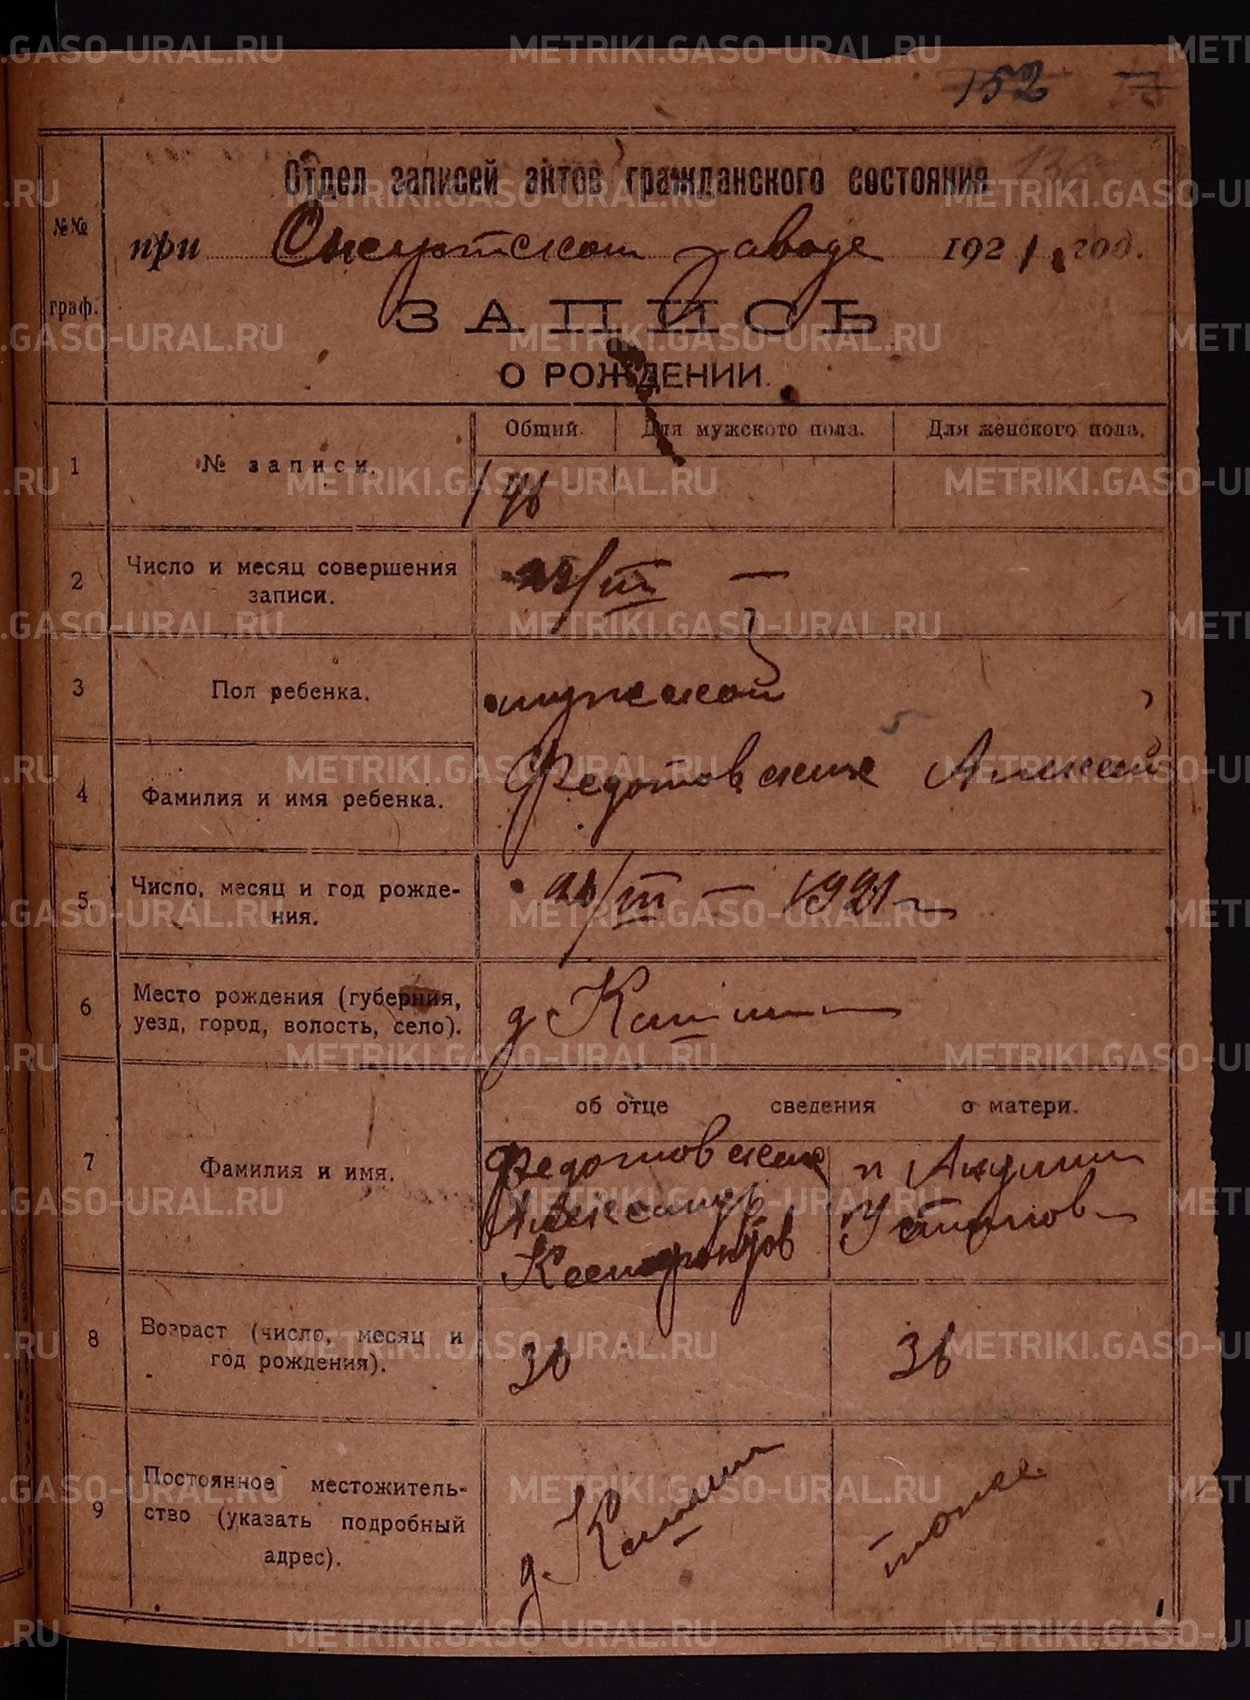 152
Отдел записей актов гражданского состояния
№№
граф.
при Сысертском заводе 1921 год.
ЗАПИСЬ
О РОЖДЕНИИ.
1
№ записи.
Общий. Для мужского пола. Для женского пола.
2
Число и месяц совершения
записи.
/III —
3
Пол ребенка.
мужской
4
Фамилия и имя ребенка.
Федотовских
5.
Число, месяц и год рожде-
ния.
/III — 1921 г
6
Место рождения (губерния,
уезд, город, волость, село).
д
7
Фамилия и имя.
об отце сведения о матери.
Федотовских
Александр
8
Возраст (число, месяц и
год рождения).
36 36
9
Постоянное местожитель-
ство (указать подробный
адрес).
д.
тоже
METRIKI.GASO-URAL.RU